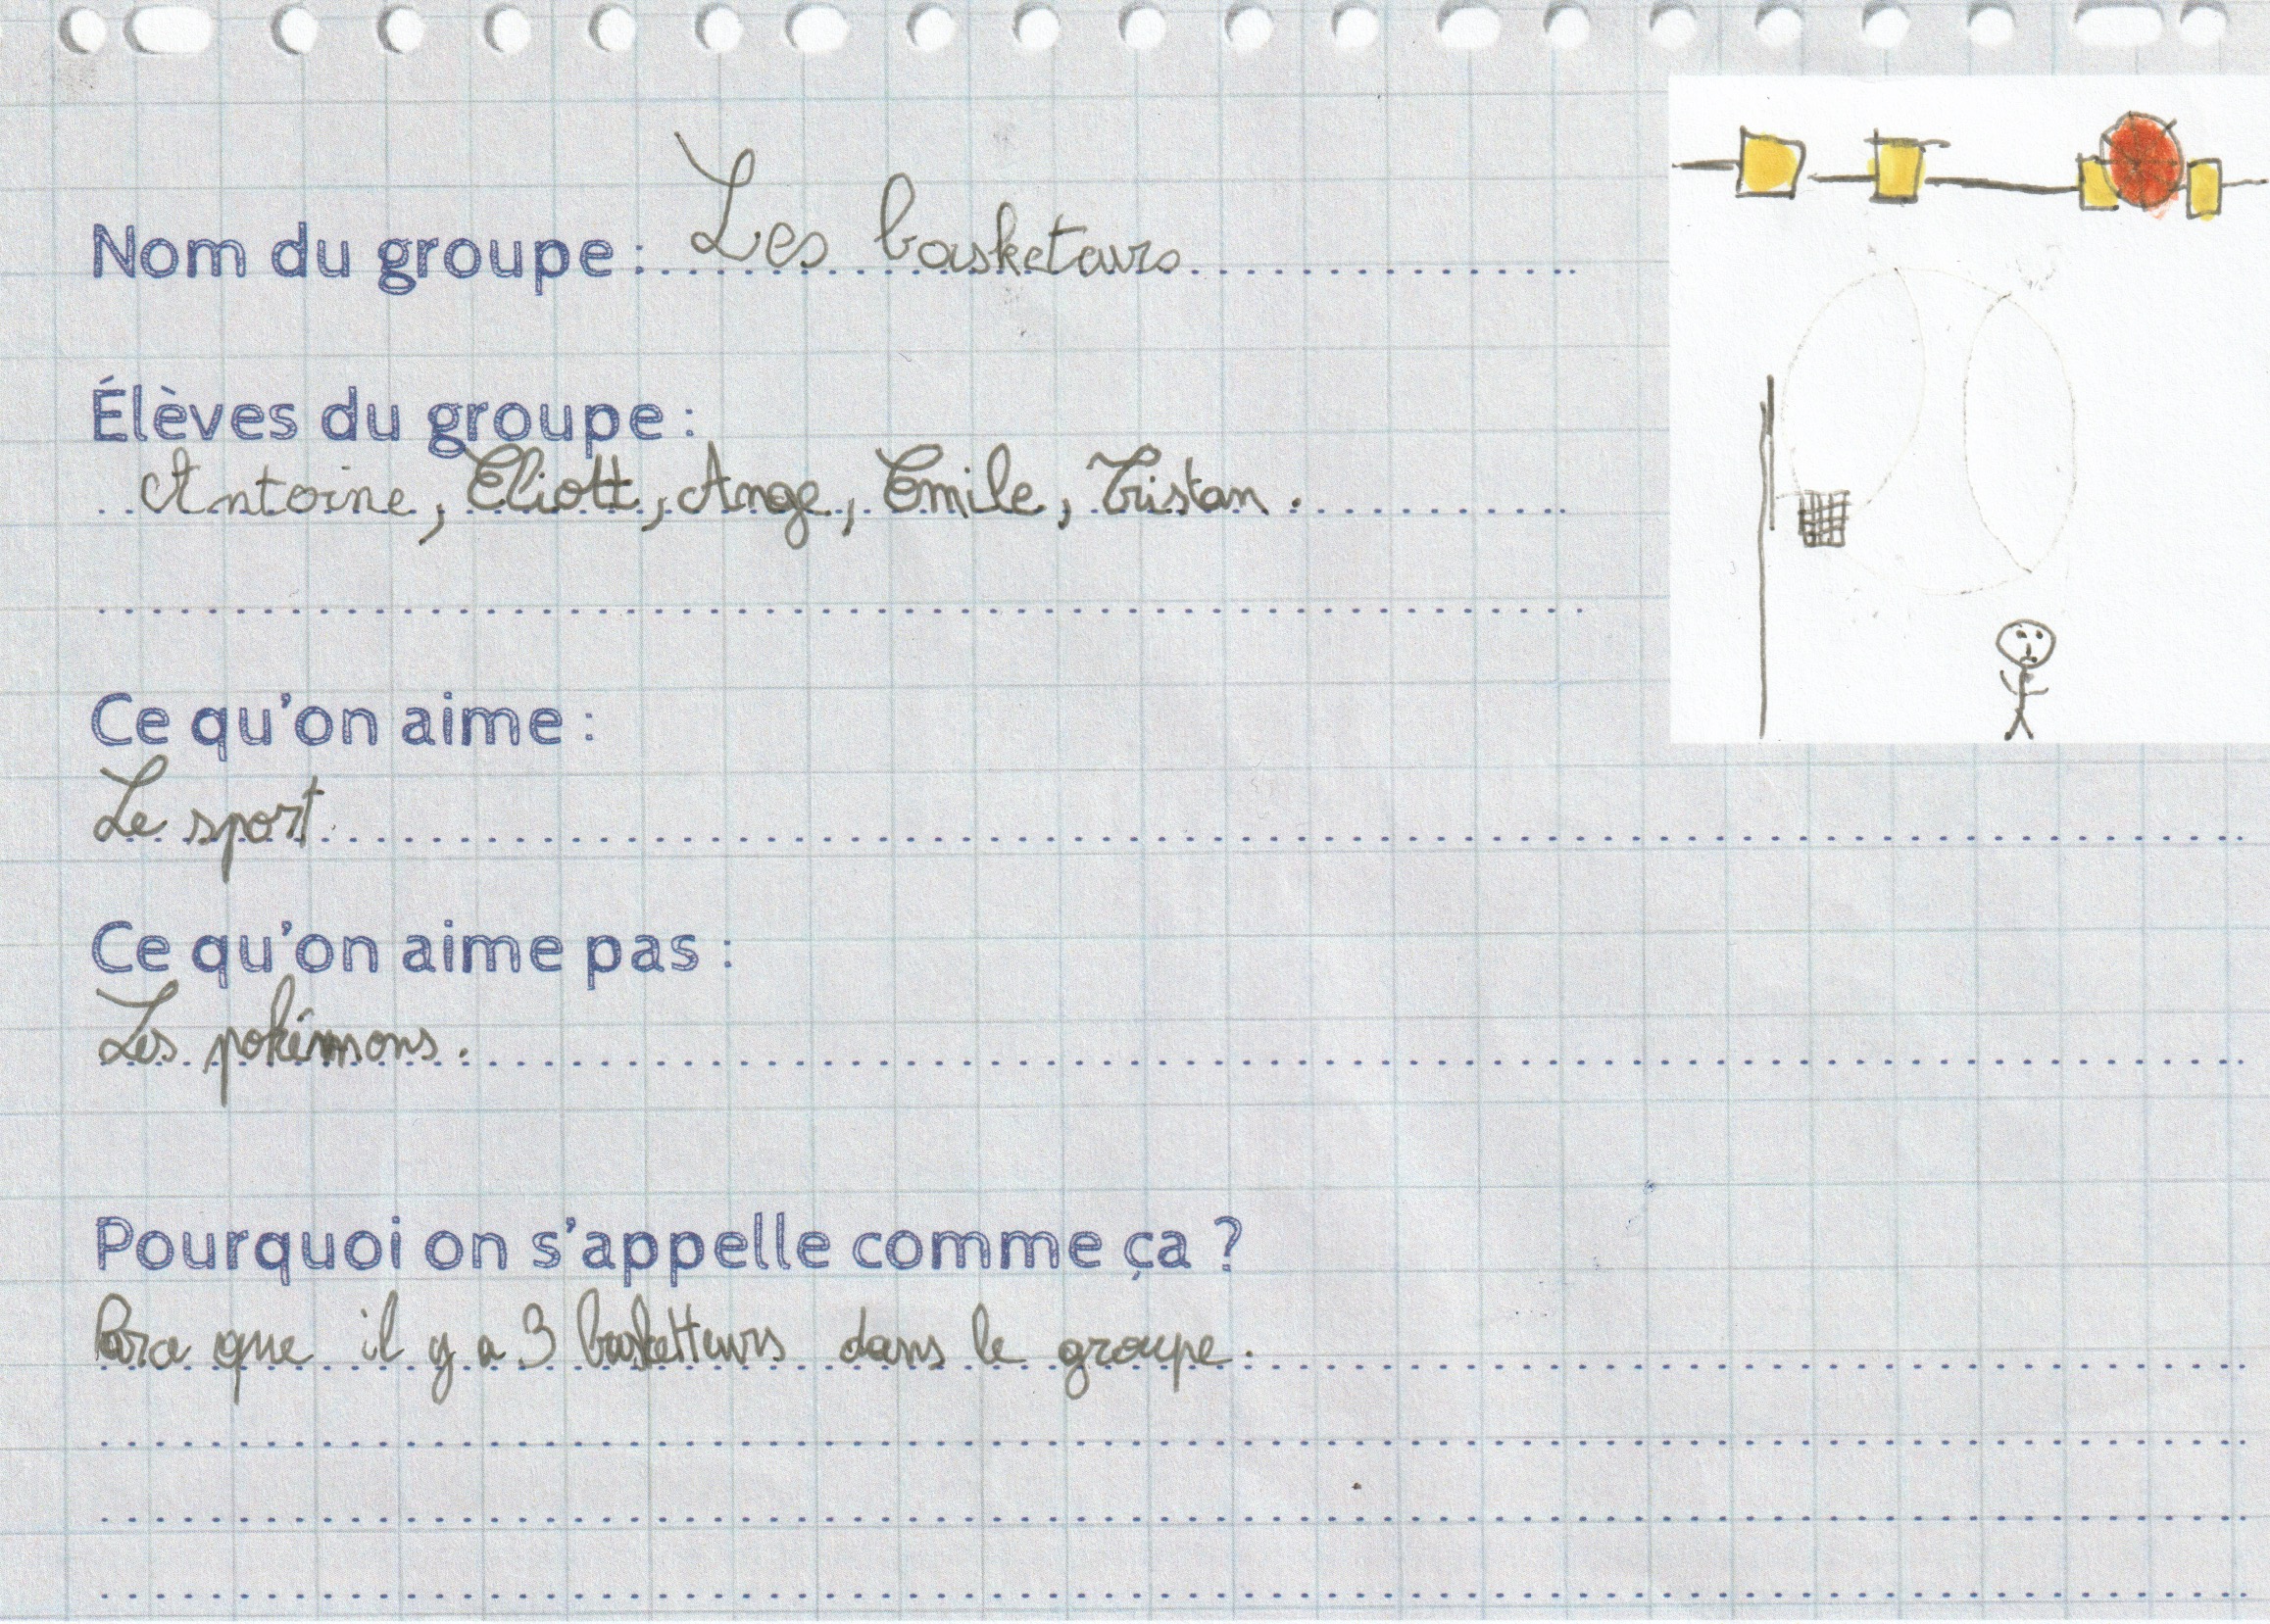 Nom du groupe : Les basketeurs
Élèves du groupe :
Antoine, Eliott, Ange, Emile, Tristan.
Ce qu'on aime :
Le sport
Ce qu'on aime pas :
Les pokémons.
Pourquoi on s'appelle comme ça ?
Parce que il y a 3 basketteurs dans le groupe.